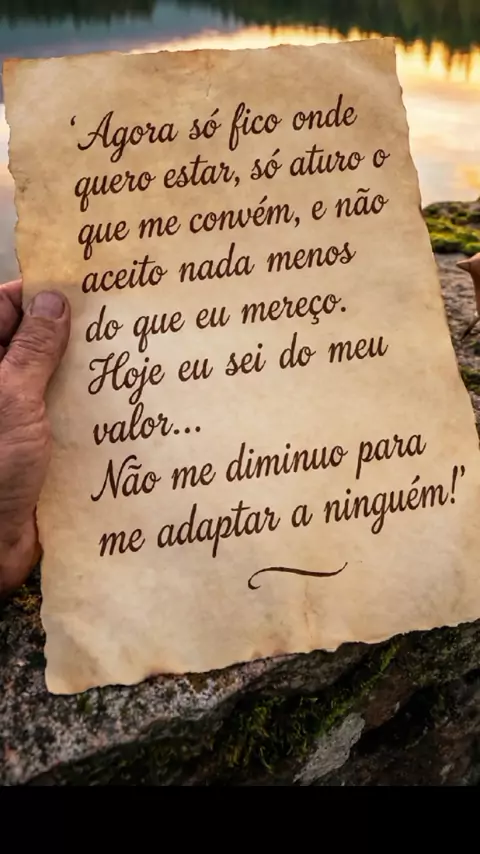 'Agora só fico onde
quero estar, só aturo o
que me convém, e não
aceito nada menos
do que eu mereço.
Hoje eu sei do meu
valor...
Não me diminuo para
me adaptar a ninguém!'